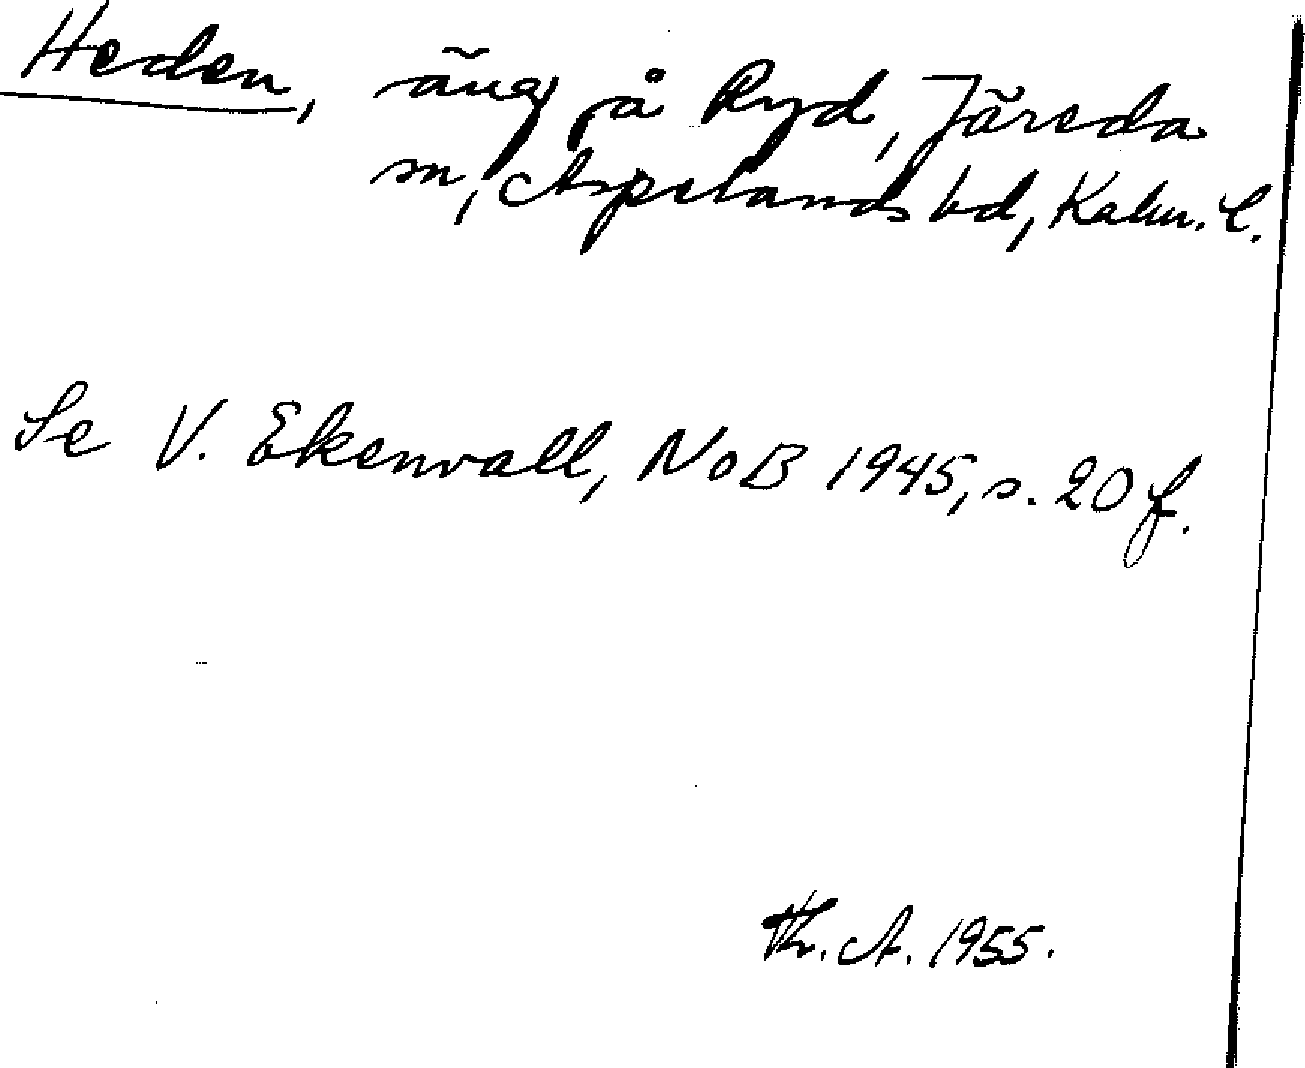 Heden, äng på Ryd, Järeda
sn, Aspelands hd, Kalm. l.
Se V. Ekenvall, NoB 1945, s. 20 f.
Th. A. 1955.